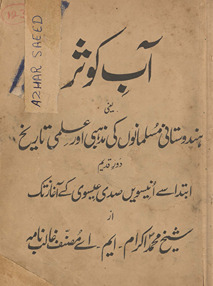 AZHAR SAEED
آبِ کوثر
یعنی
ہندوستانی مسلمانوں کی مذہبی اور علمی تاریخ
دورِ قدیم
ابتدا سے انیسویں صدی عیسوی کے آغاز تک
از
شیخ محمد اکرام - ایم - اے مصنف غالب نامہ